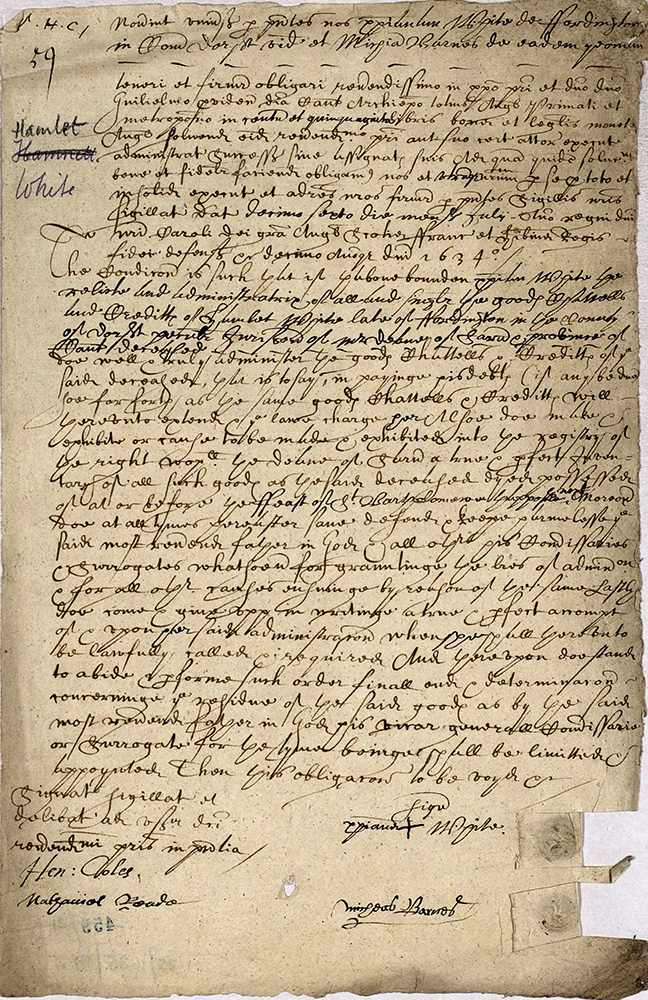 Noverint universi p pntes nos xpianam White de Fordington
in Com Dorst vid et Michaā Barnes de eadem yeoman
59
teneri et firmr obligari revendissimo in xpo pri et dno dno
Guilielmo providen dia Cant Archiepo totius Angt Primati et
metropno in centu et quinquaginta libris bone et legtis monete
Hamlet
Angt solvend eid revendmo pri aut suo cert attor execut
White
administrat Success sive assignat suis Ad qua quid soluc
bene et fidelr faciend obligam nos et p se p toto et
in solid execut et admrs nros firmr p pntes Sigillis nris
Sigillat Dat decimo sexto die mens Julij Ano regni dni
nri Caroli dei gra Angt Scotie ffranc et Hibnie Regis
fidei defens &c decimo Anoq dni 1634
The Condicon is such that if thabove bounden xpian White the
relicte and administratrix of all and singler the goods Chattells
and Creditts of Hamlet White late of ffordington in the County
of Dorst deane of Sarum province of
Cant deceased
doe well & truly administer the goods Chattells & Creditts of ye
said deceased, that is to say, in payinge his debts
soe farforth as the same goods Chattells & Creditts will
therevnto extend & ye lawe charge her Alsoe doe make &
exhibite or cause to be made & exhibited into the Registry of
the right worll the deane of Sarum a true & pfect Inven-
tary of all such goods as the said deceased dyed possessed
of at or before the ffeast of St Bartholomewe thapostle Moreover
doe at all tymes hereafter save defend & keepe harmelesse ye
said most revend father in God & all other his Comissaries
& Surrogates whatsoevr for grauntinge the lres of admincon
& for all other causes ensuinge by reason of the same Lastly
doe come & give vpp in writinge a true & pfect accompt
of & vpon her said administracon when she shall therevnto
be lawfully called & required And therevpon doe stand
to abide & pforme such order finall end & determinacon
concerninge ye residue of the said goods as by the said
most revend father in God his vicar generall Comissarie
or Surrogate for the tyme beinge shall be limitted &
appoynted Then this obligacon to be voyd &c
Signat Sigillat et
delibat
revendmi pris in pntia
Hen: Coles.
Nathaniel Reade
Signū
xpiane + White.
Micheas Barnes